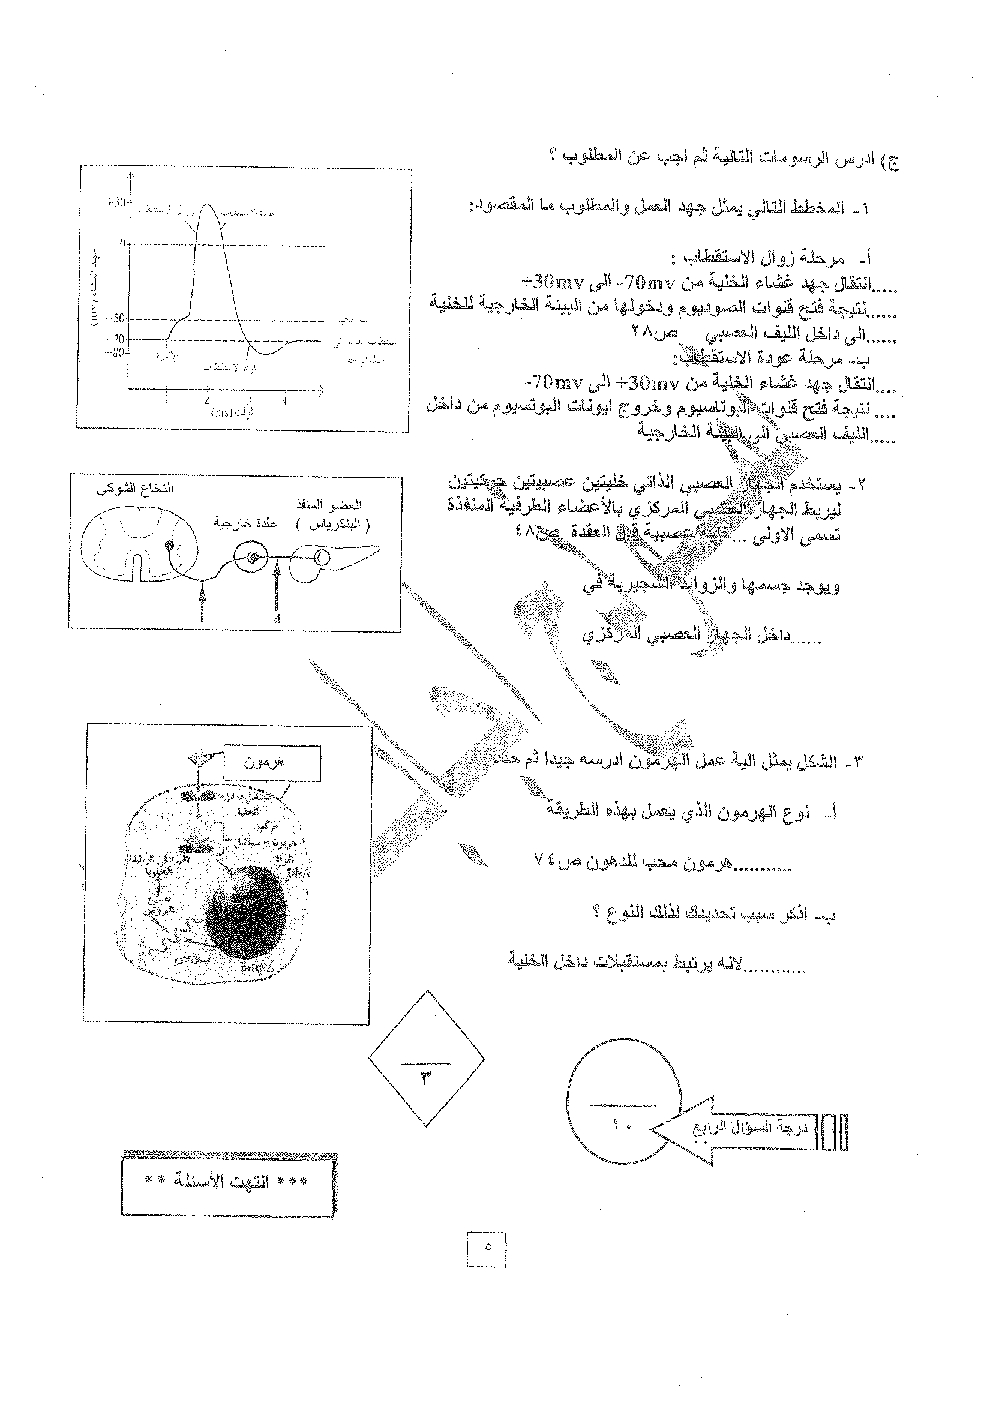 ج) ادرس الرسومات التالية ثم اجب عن المطلوب ؟
١- المخطط التالي يمثل جهد العمل والمطلوب ما المقصود:
أ- مرحلة زوال الاستقطاب :
.....انتقال جهد غشاء الخلية من 70mv- الى 30mv+
......نتيجة فتح قنوات الصوديوم ودخولها من البيئة الخارجية للخلية
......الى داخل الليف العصبي ص٢٨
ب- مرحلة عودة الاستقطاب:
....انتقال جهد غشاء الخلية من 30mv+ الى 70mv-
.... نتيجة فتح قنوات البوتاسيوم وخروج ايونات البوتسيوم من داخل
.....الليف العصبي الى البيئة الخارجية
+30
0
-50
-70
-80
2
4
٢- يستخدم الجهاز العصبي الذاتي خليتين عصبيتين حركيتين
ليربط الجهاز العصبي المركزي بالأعضاء الطرفية المنفذة
تسمى الاولى ... عصبية قبل العقدة ص٤٨
ويوجد جسمها والزوائد الشجيرية في
......داخل الجهاز العصبي المركزي
النخاع الشوكي
العضو المنفذ
( البنكرياس )
عقدة خارجية
٣- الشكل يمثل الية عمل الهرمون ادرسه جيدا ثم حدد
أ- نوع الهرمون الذي يعمل بهذه الطريقة
...........هرمون محب للدهون ص٧٤
ب- اذكر سبب تحديدك لذلك النوع ؟
............لانه يرتبط بمستقبلات داخل الخلية
هرمون
٣
١٠
درجة السؤال الرابع
*** انتهت الأسئلة **
٥